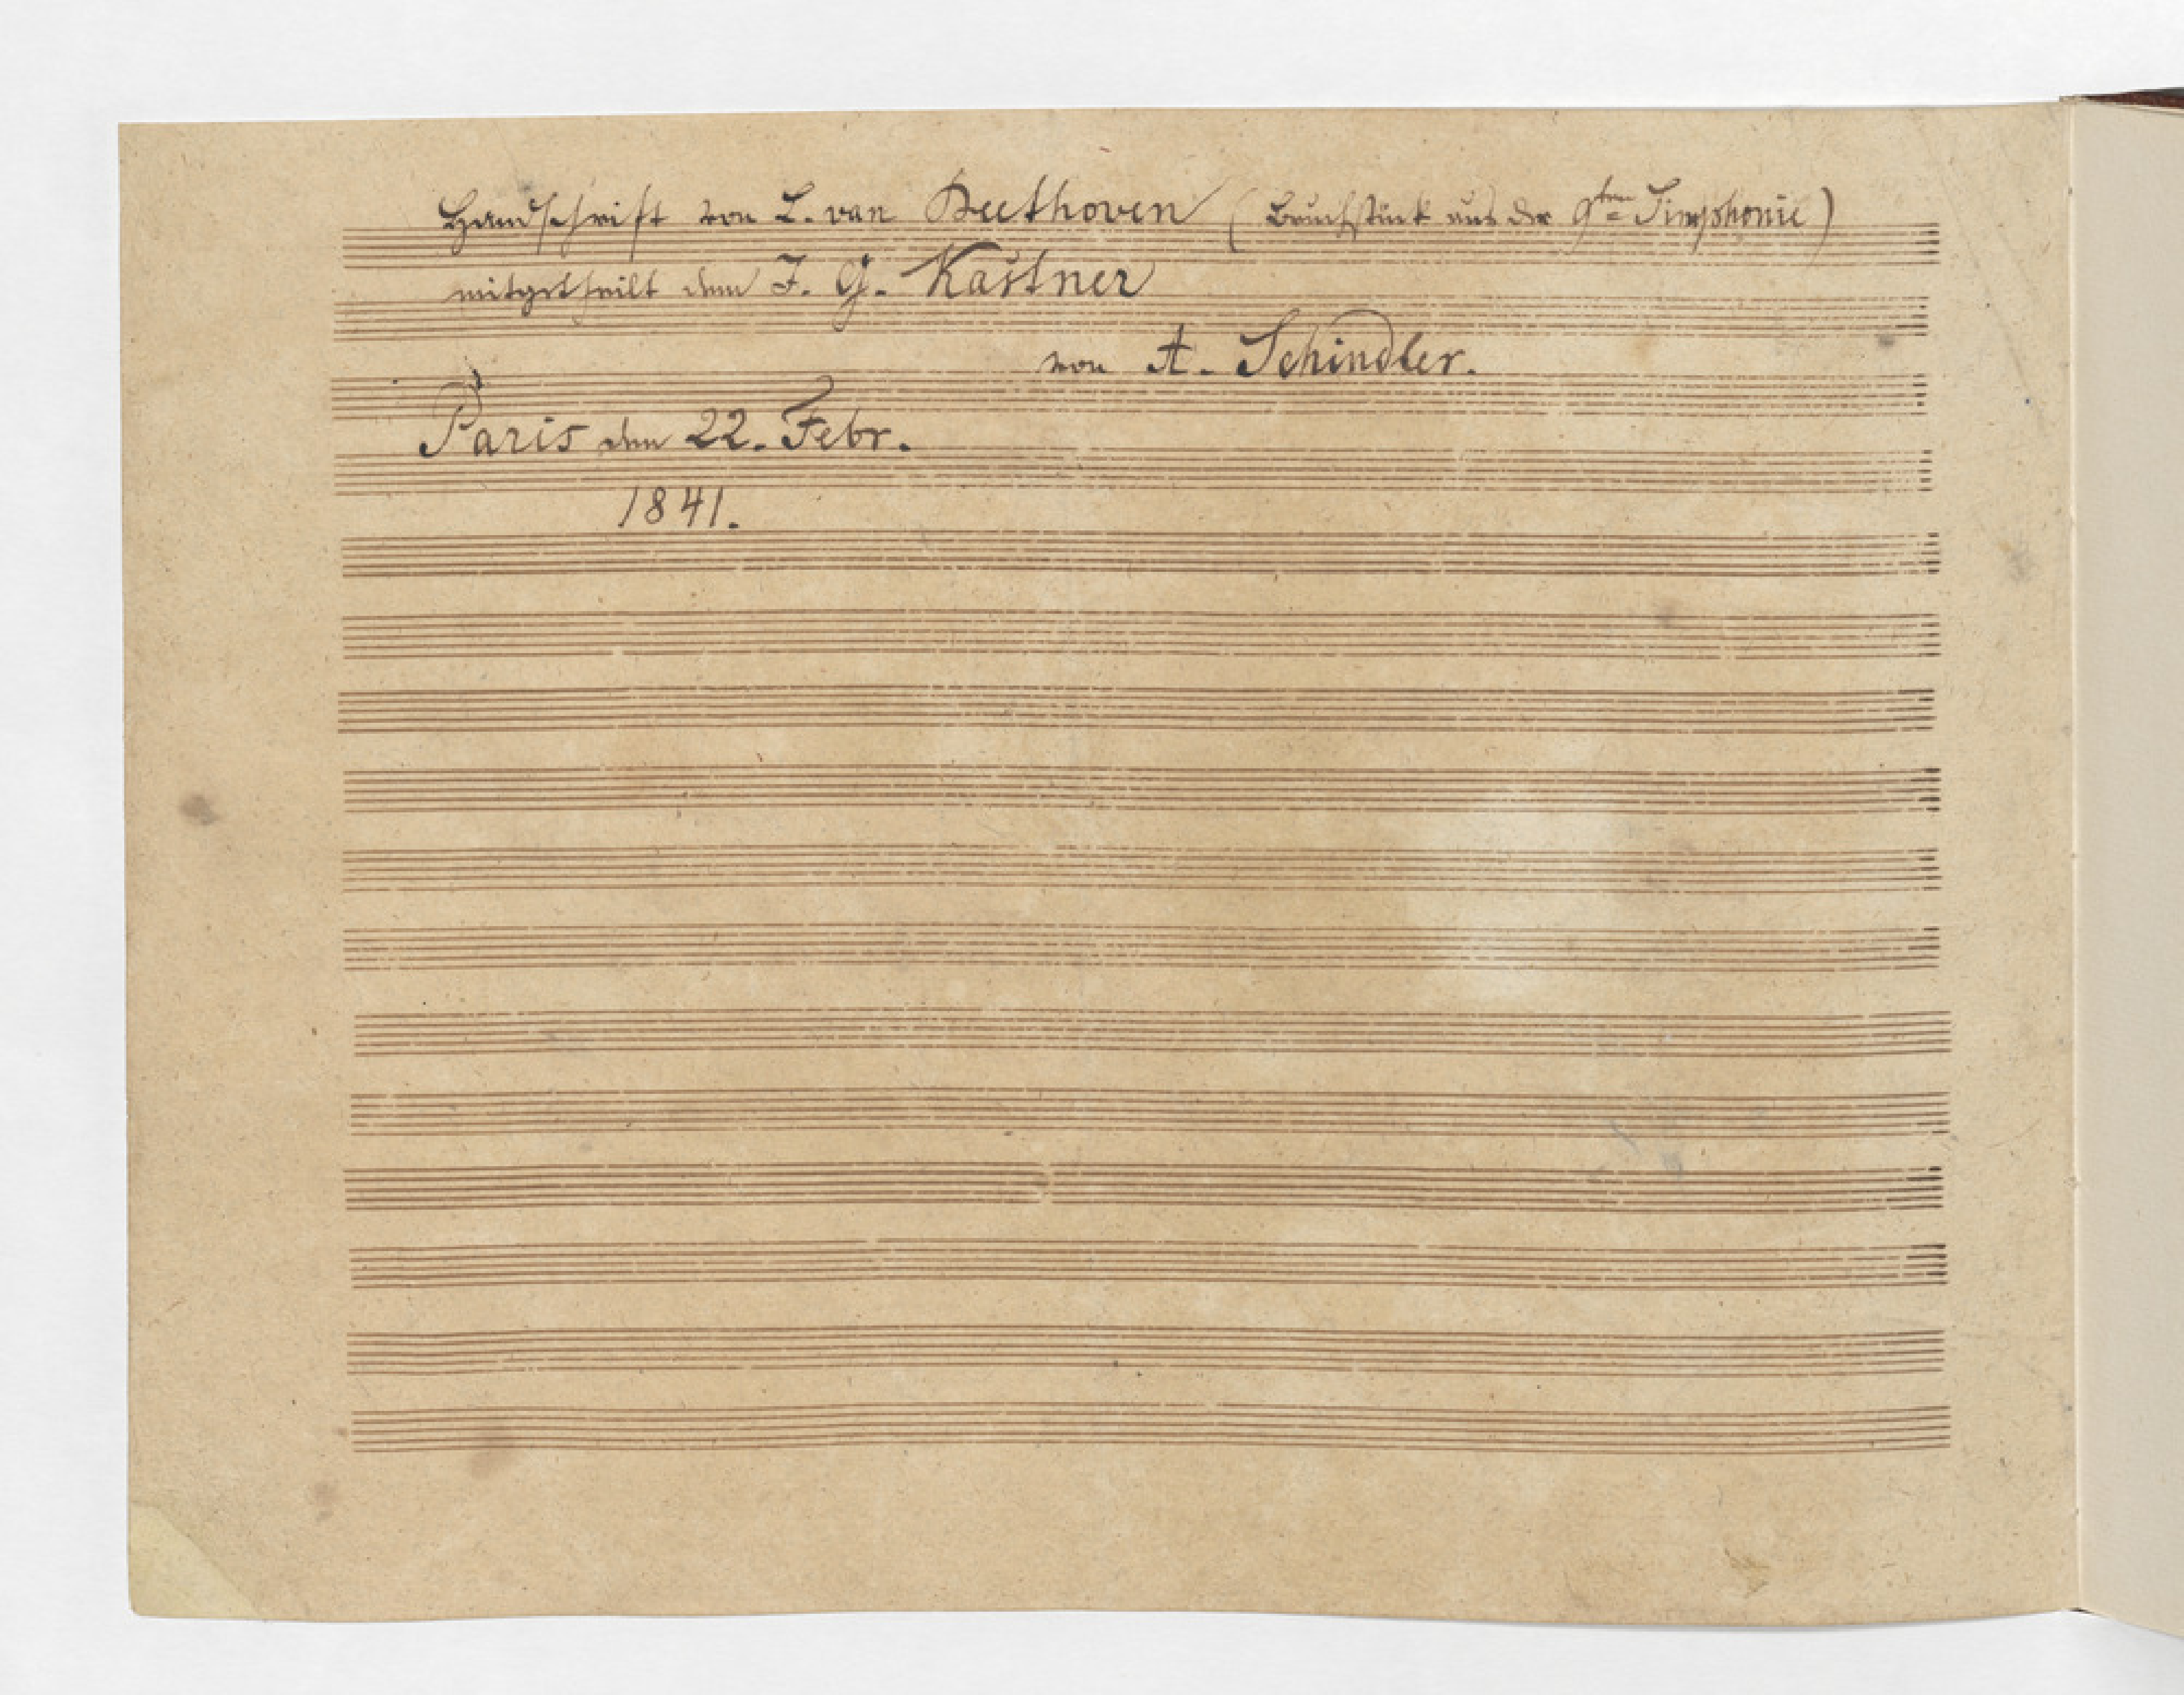 Handschrift von L. van Beethoven (Bruchstück aus der 9ten Simphonie)
mitgetheilt dem J. G. Kastner
von A. Schindler.
Paris den 22. Febr.
1841.